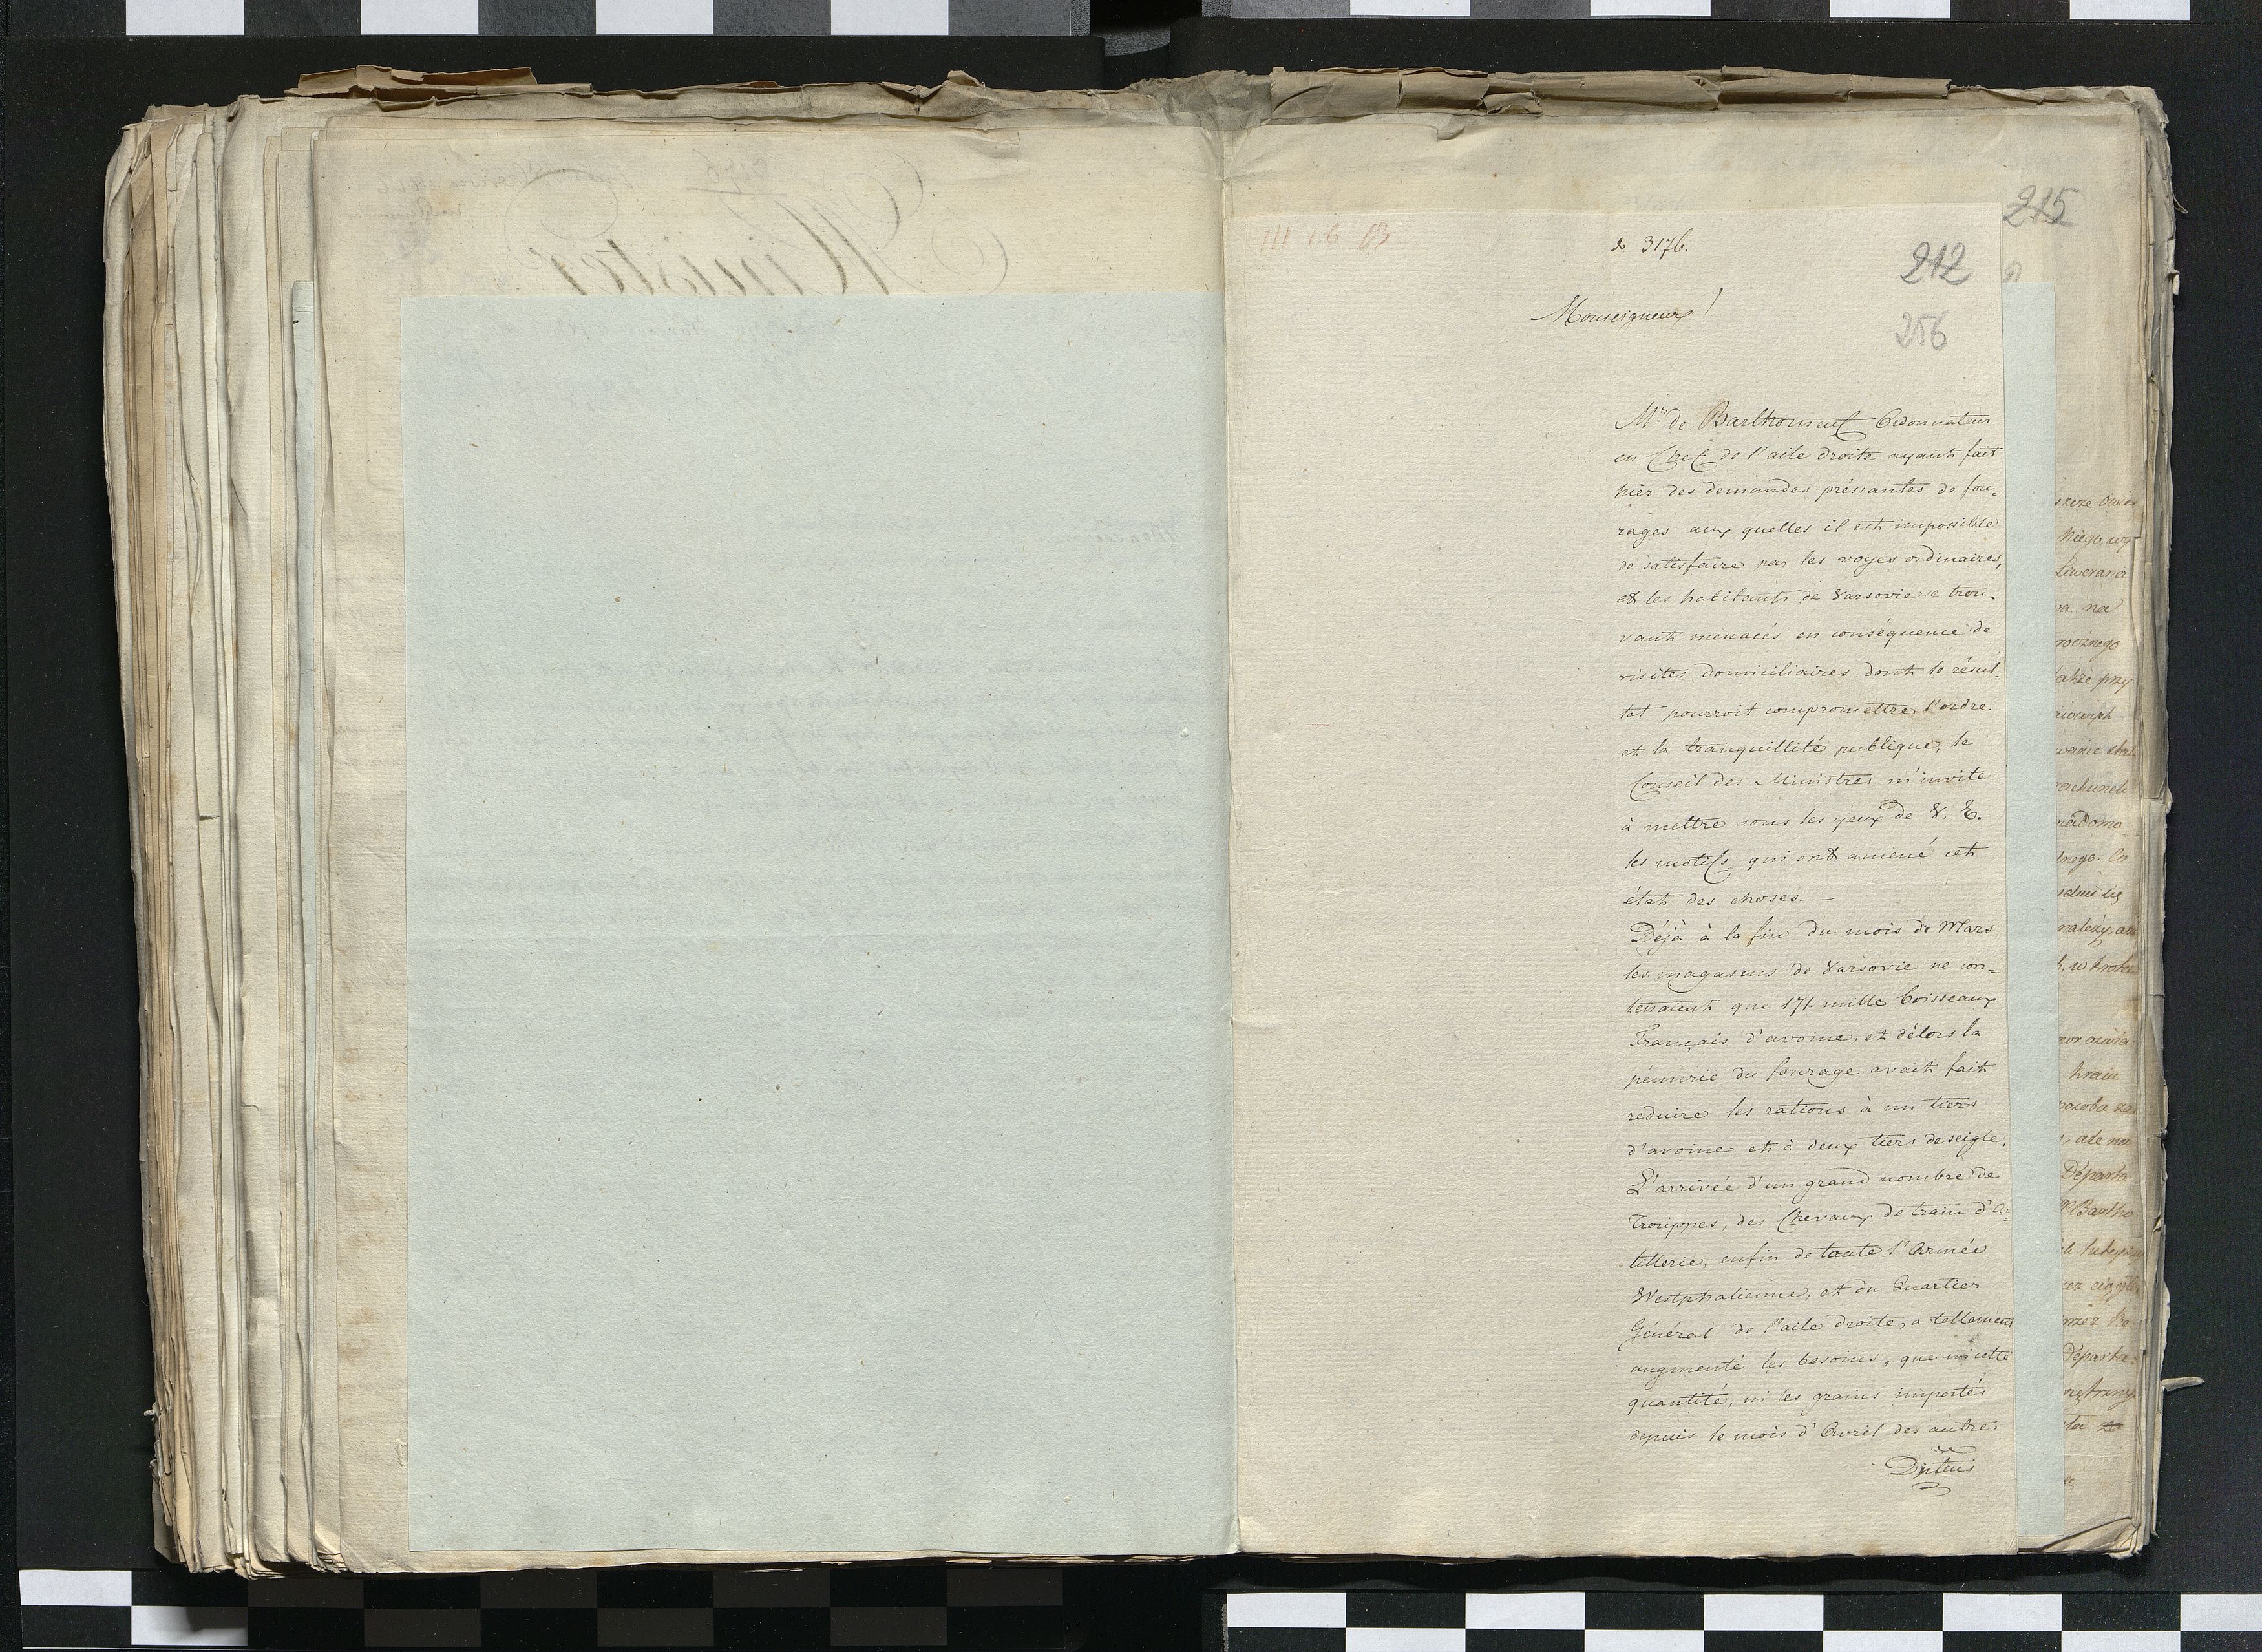 215
III 16 B
3176.
212
Monseigneur!
256
Mr. de Barthomeuf Ordonnateur
en Chef de l'aile droite ayant fait
hier des demandes préssantes de fou-
rages aux quelles il est impossible
de satisfaire par les voyes ordinaires,
et les habitants de Varsovie se trou-
vant menacés en conséquence de
visites domiciliaires dont le résul-
tat pourroit compromettre l'ordre
et la tranquillité publique, le
Conseil des Ministres m'invite
à mettre sous les yeux de V. E.
les motifs qui ont amené cet
état des choses. —
Déjà à la fin du mois de Mars
les magasins de Varsovie ne con-
tenaient que 171. mille boisseaux
Français d'avoine, et délors la
pénurie du fourage avait fait
réduire les rations à un tiers
d'avoine et à deux tiers de seigle.
L'arrivée d'un grand nombre de
Trouppes, des Chevaux de train d'Ar-
tillerie, enfin de toute l'Armée
Westphalienne, et du Quartier
Général de l'aile droite, a tellement
augmenté les besoins, que ni cette
quantité, ni les grains importés
depuis le mois d'Avril des autres
Minister
hiego
Liweranci
na
rocznego
także przy
radomo
należy
krain
ale na
Départa
Bartho
Départa